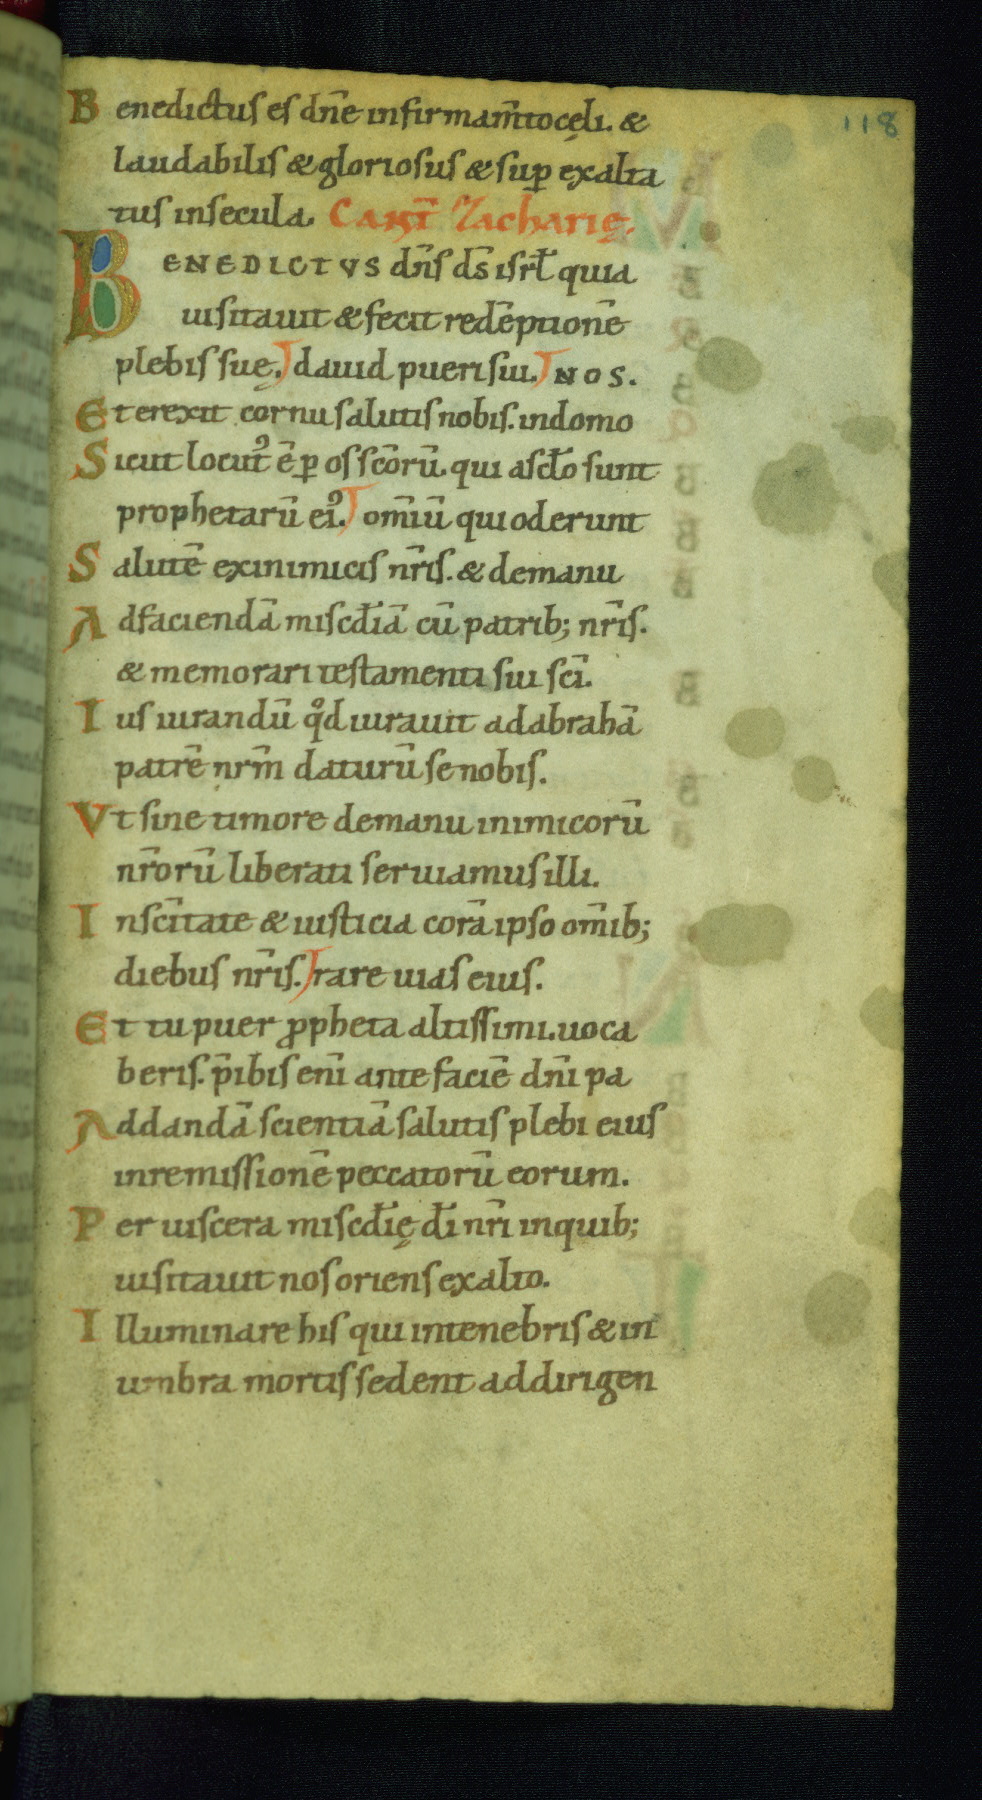 118
Benedictus es dn̄e infirmam̄to cęli. &
laudabilis & gloriosus & sup̄ exalta
tus insecula. Cant̄ Zacharię.
BENEDICTVS dn̄s ds̄ isrl̄ quia
uisitauit & fecit redēptionē
plebis suę. dauid pueri sui. NOS.
Et erexit cornu salutis nobis. indomo
Sicut locut᾽ ē p̄ os sc̄orū. qui asc̄lo sunt
prophetarū ei᾽. om̄iū qui oderunt
Salutē exinimicis nr̄is. & demanu
Adfaciendā misc̄diā cū patrib; nr̄is.
& memorari testamenti sui sc̄i.
Iusiurandū qd̊ iurauit adabrahā
patrē nr̄m daturū se nobis.
Vt sine timore demanu inimicorū
nr̄orū liberati seruiamus illi.
Insc̄itate & iusticia corā ipso om̄ib;
diebus nr̄is. rare uias eius.
Et tu puer ꝓpheta altissimi. uoca
beris. p̄ibis eni̅ ante faciē dn̄i pa
Addandā scientiā salutis plebi eius
inremissionē peccatorū eorum.
Per uiscera misc̄dię dī nr̄i inquib;
uisitauit nos oriens exalto.
Illuminare his qui intenebris & in
umbra mortis sedent addirigen